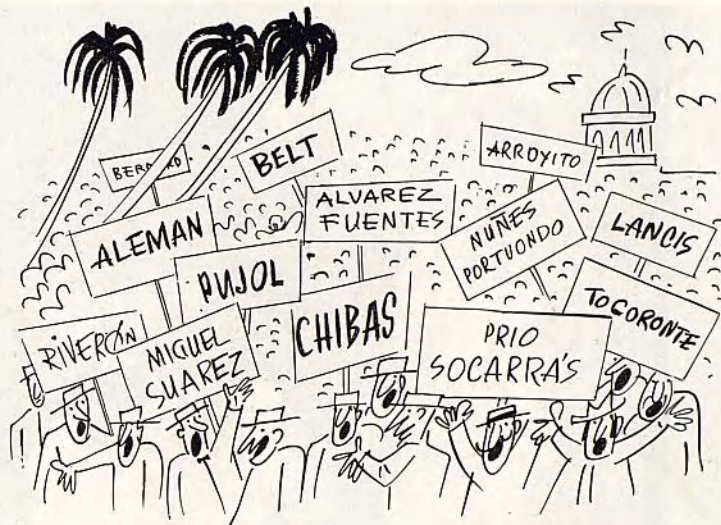 BELT
ARROYITO
ALVAREZ
FUENTES
ALEMAN
NUÑES
PORTUONDO
LANCIS
PUJOL
TOCORONTE
RIVERÓN
MIGUEL
SUAREZ
CHIBAS
PRIO
SOCARRÁS